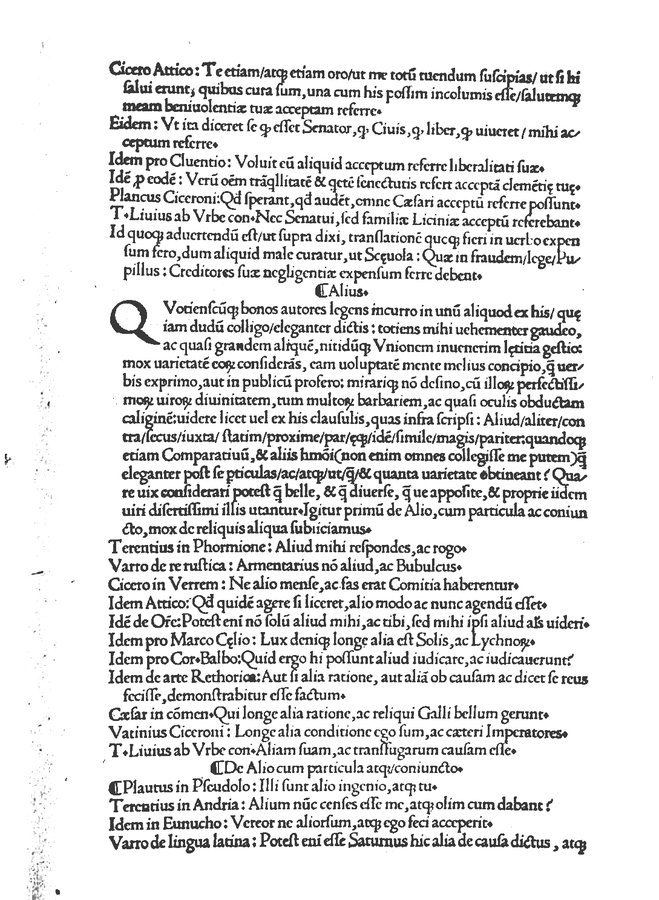 Cicero Attico: Te etiam/atqꝫ etiam oro/ut me totū tuendum suscipias/ ut si hi
salui erunt, quibus cura sum, una cum his possim incolumis esse/salutemqꝫ
meam beniuolentiæ tuæ acceptam referre.
Eidem: Vt ita diceret se ꝙ esset Senator, ꝙ Ciuis, ꝙ liber, ꝙ uiueret / mihi ac-
ceptum referre.
Idem pro Cluentio: Voluit eū aliquid acceptum referre liberalitati suæ.
Idē ꝓ eodē: Verū oēm trāq̄llitatē & q̄etē senectutis refert acceptā clemētię tuę.
Plancus Ciceroni: Qd̄ sperant, qd̄ audēt, omne Cæsari acceptū referre possunt.
T. Liuius ab Vrbe con. Nec Senatui, sed familiæ Liciniæ acceptū referebant.
Id quoqꝫ aduertendū est/ut supra dixi, translationē quoqꝫ fieri in uerbo expen
sum fero, dum aliquid male curatur, ut Scęuola: Quæ in fraudem/lege/Pu-
pillus: Creditores suæ negligentiæ expensum ferre debent.
¶Alius.
QVotienscūqꝫ bonos autores legens incurro in unū aliquod ex his/ quę
iam dudū colligo/eleganter dictis: totiens mihi uehementer gaudeo,
ac quasi grandem aliquē, nitidūqꝫ Vnionem inuenerim lętitia gestio:
mox uarietatē eoꝝ considerās, eam uoluptatē mente melius concipio, q̄ uer-
bis exprimo, aut in publicū profero: mirariqꝫ nō desino, cū illoꝝ perfectissi-
moꝝ uiroꝝ diuinitatem, tum multoꝝ barbariem, ac quasi oculis obductam
caliginē: uidere licet uel ex his clausulis, quas infra scripsi: Aliud/aliter/con
tra/secus/iuxta/ statim/proxime/par/ęqꝫ/idē/simile/magis/pariter: quandoqꝫ
etiam Comparatiuū, & aliis hmōi(non enim omnes collegisse me putem)q̄
eleganter post se ꝑticulas/ac/atqꝫ/ut/q̄/& quanta uarietate obtineant? Qua-
re uix considerari potest q̄ belle, & q̄ diuerse, q̄ ue apposite, & proprie iidem
uiri disertissimi illis utantur. Igitur primū de Alio, cum particula ac coniun
cto, mox de reliquis aliqua subiiciamus.
Terentius in Phormione: Aliud mihi respondes, ac rogo.
Varro de re rustica: Armentarius nō aliud, ac Bubulcus.
Cicero in Verrem: Ne alio mense, ac fas erat Comitia haberentur.
Idem Attico: Qd̄ quidē agere si liceret, alio modo ac nunc agendū esset.
Idē de Ofc̄: Potest eni nō solū aliud mihi, ac tibi, sed mihi ipsi aliud al̄s uideri.
Idem pro Marco Cęlio: Lux deniqꝫ longe alia est Solis, ac Lychnoꝝ.
Idem pro Cor. Balbo: Quid ergo hi possunt aliud iudicare, ac iudicauerunt?
Idem de arte Rethorica: Aut si alia ratione, aut aliā ob causam ac dicet se reus
fecisse, demonstrabitur esse factum.
Cæsar in cōmen. Qui longe alia ratione, ac reliqui Galli bellum gerunt.
Vatinius Ciceroni: Longe alia conditione ego sum, ac cæteri Imperatores.
T. Liuius ab Vrbe con. Aliam suam, ac transfugarum causam esse.
¶De Alio cum particula atqꝫ/coniuncto.
¶Plautus in Pseudolo: Illi sunt alio ingenio, atqꝫ tu.
Terentius in Andria: Alium nūc censes esse me, atqꝫ olim cum dabant?
Idem in Eunucho: Vereor ne aliorsum, atqꝫ ego feci acceperit.
Varro de lingua latina: Potest eni esse Saturnus hic alia de causa dictus, atqꝫ